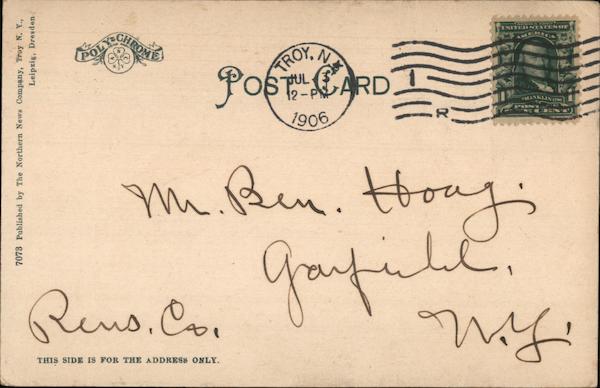 7073 Published by The Northern News Company, Troy N. Y.,
Leipzig, Dresden
POLY-CHROME
POST CARD
TROY, N.Y.
JUL 3
12-PM
1906
1
R
UNITED STATES OF
AMERICA
FRANKLIN
POSTAGE
Mr. Ben. Hoag.
Garfield,
Rens. Co.
N.Y.
THIS SIDE IS FOR THE ADDRESS ONLY.